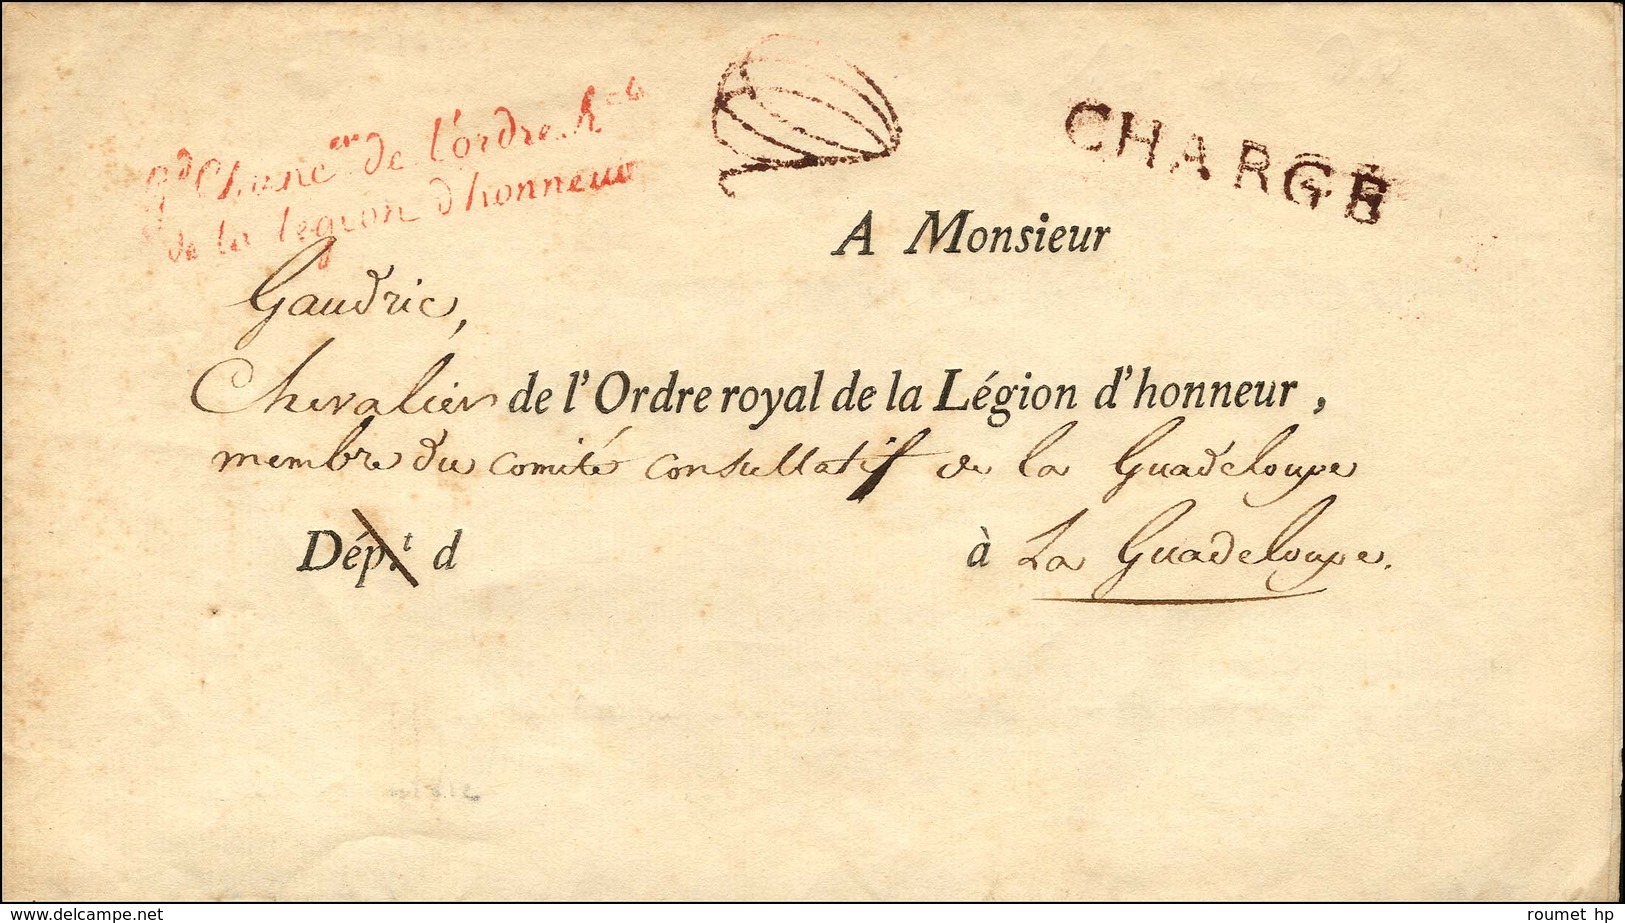 Gd Chancer de l'ordre Ral
de la légion d'honneur
CHARGÉ
A Monsieur
Gaudric,
Chevalier de l'Ordre royal de la Légion d'honneur,
membre du comité consultatif de la Guadeloupe
Dép.t d à La Guadeloupe.
www.delcampe.net
roumet hp